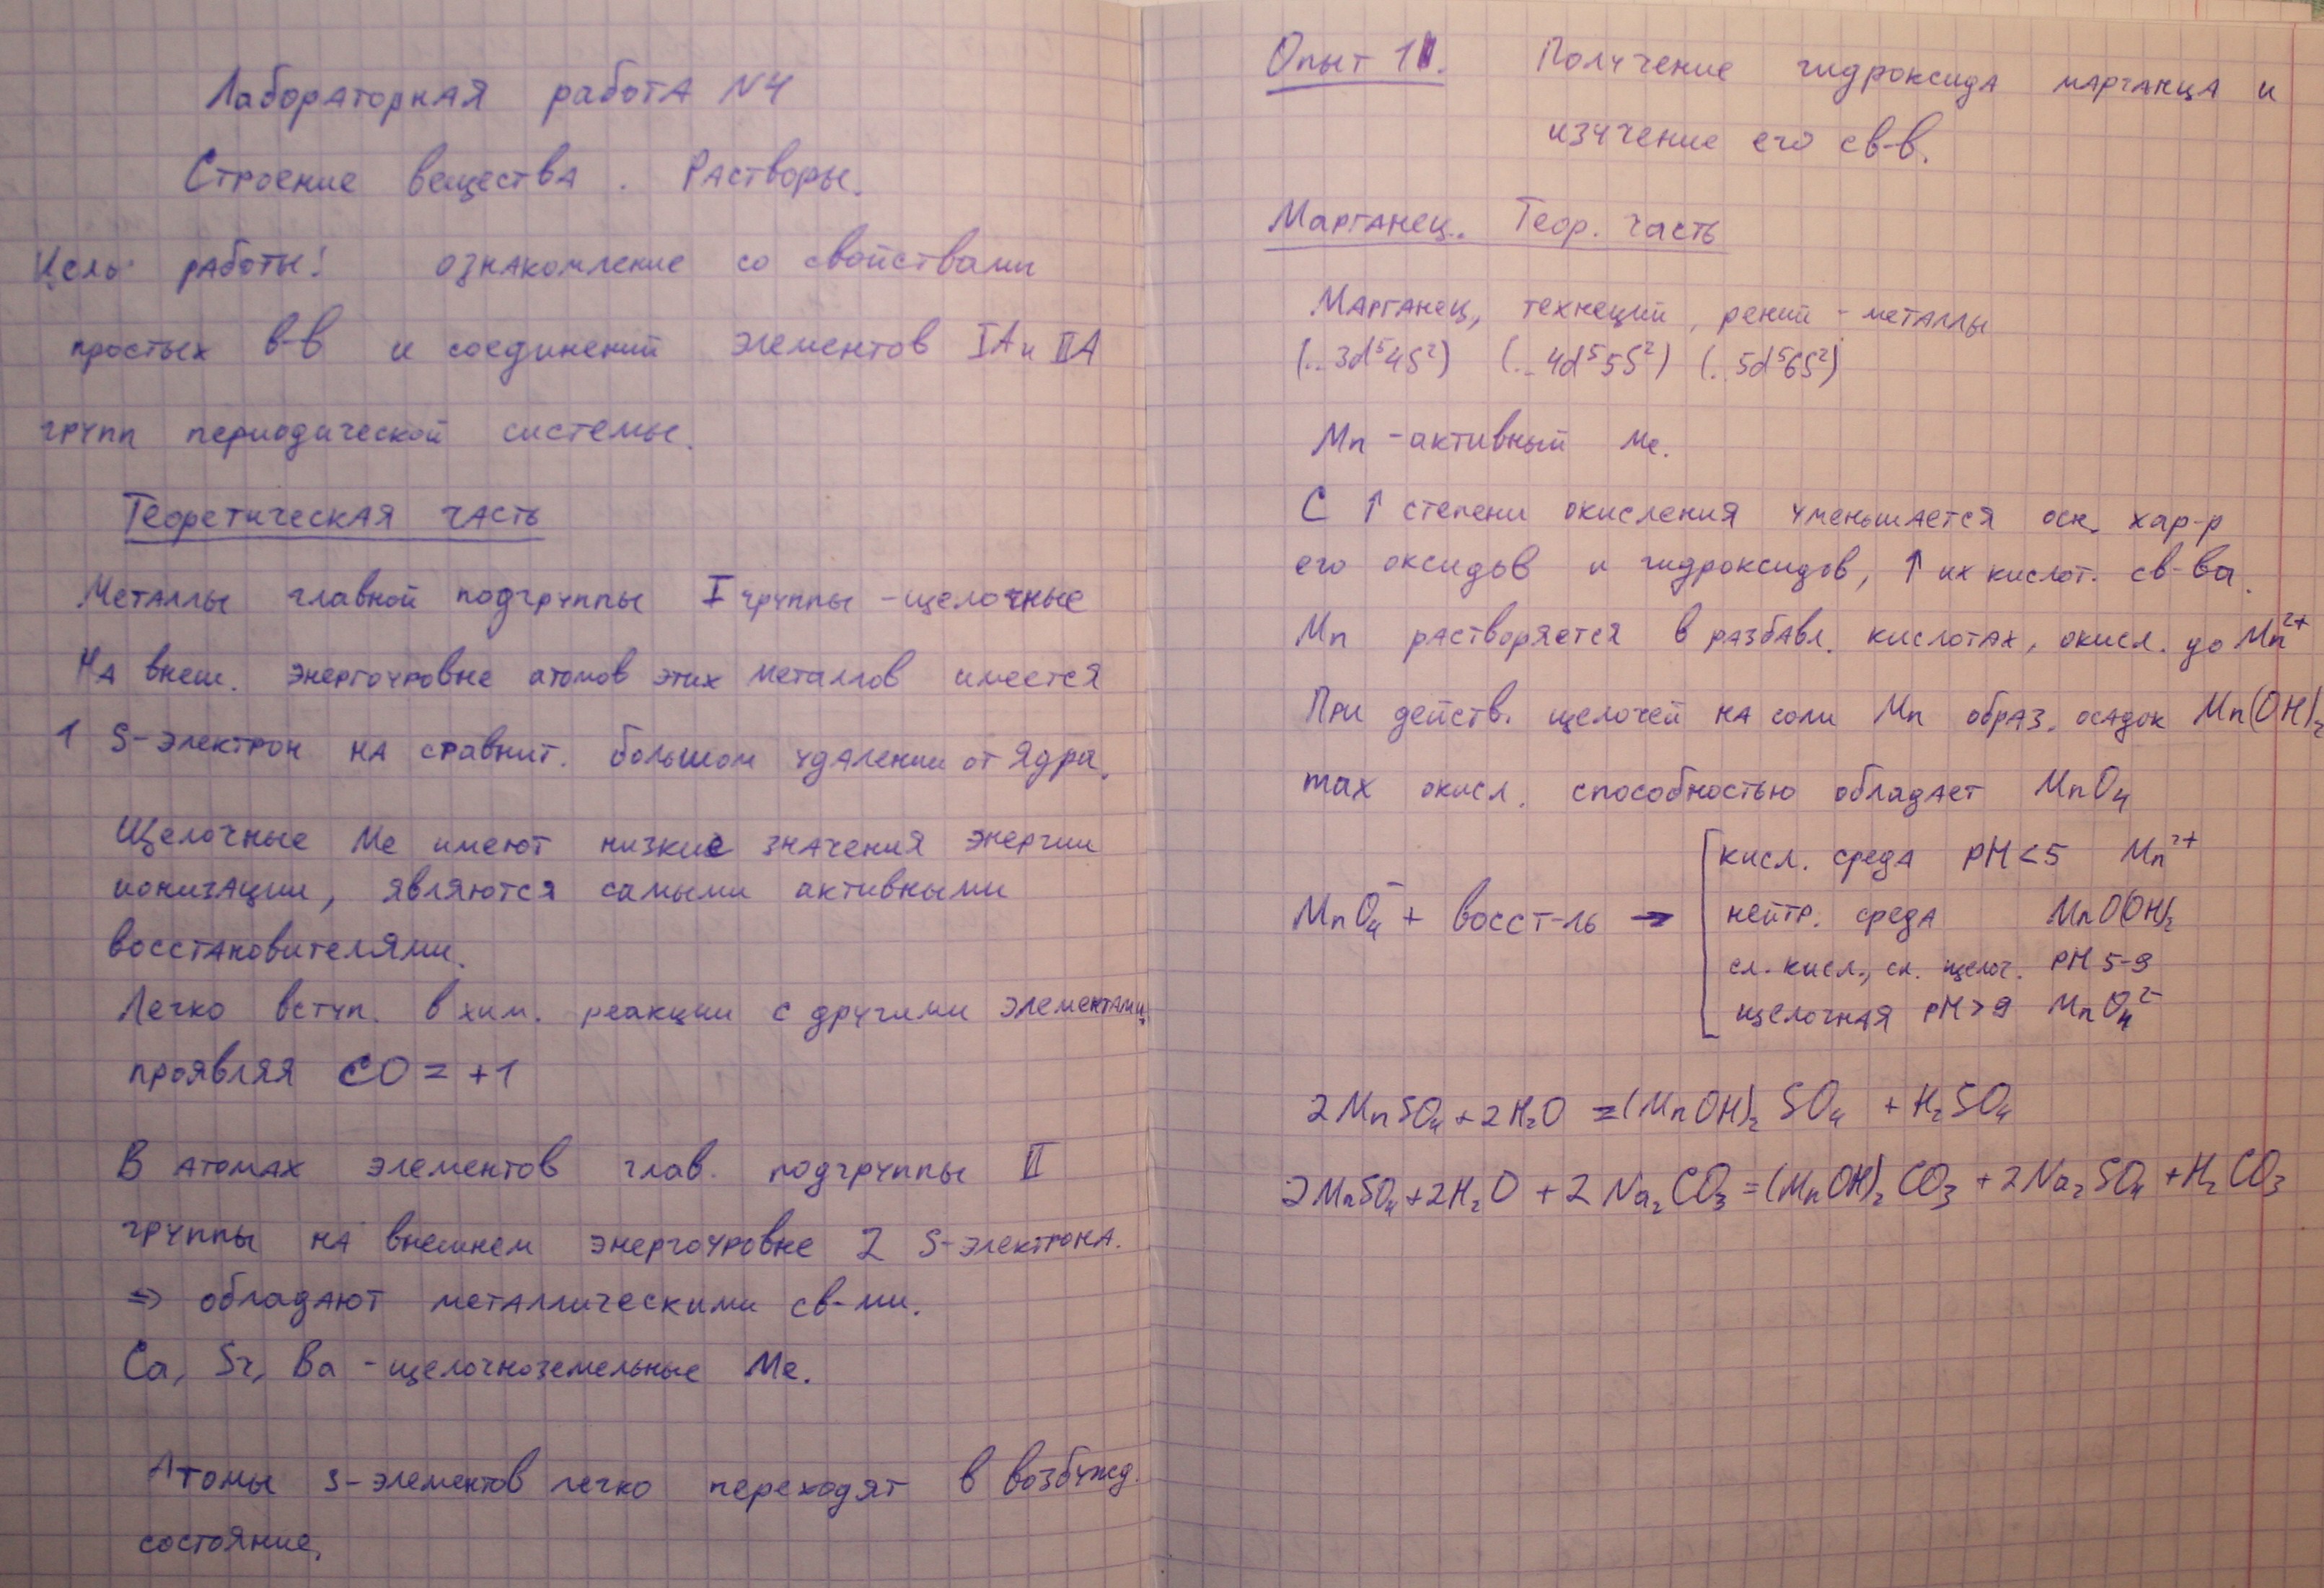 Лабораторная работа N4
Строение вещества. Растворы.
Цель работы: ознакомление со свойствами
простых в-в и соединений элементов IА и IIА
групп периодической системы.
Теоретическая часть
Металлы главной подгруппы I группы - щелочные
На внеш. энергоуровне атомов этих металлов имеется
1 S-электрон на сравнит. большом удалении от ядра.
Щелочные Ме имеют низкие значения энергии
ионизации, являются самыми активными
восстановителями.
Легко вступ. в хим. реакции с другими элементами,
проявляя СО = +1
В атомах элементов глав. подгруппы II
группы на внешнем энергоуровне 2 S-электрона.
=> обладают металлическими св-ми.
Ca, Sr, Ba - щелочноземельные Ме.
Атомы s-элементов легко переходят в возбужд.
состояние.
Опыт 11. Получение гидроксида марганца и
изучение его св-в.
Марганец. Теор. часть
Марганец, технеций, рений - металлы
(..3d⁵4S²) (..4d⁵5S²) (..5d⁵6S²)
Mn - активный Ме.
С ↑ степени окисления уменьшается осн. хар-р
его оксидов и гидроксидов, ↑ их кислот. св-ва.
Mn растворяется в разбавл. кислотах, окисл. до Mn²⁺
При действ. щелочей на соли Mn образ. осадок Mn(OH)₂
max окисл. способностью обладает MnO₄
MnO₄⁻ + восст-ль →
кисл. среда pH<5 Mn²⁺
нейтр. среда MnO(OH)₂
сл. кисл., сл. щелоч. pH 5-9
щелочная pH>9 MnO₄²⁻
2MnSO₄+2H₂O =(MnOH)₂SO₄ + H₂SO₄
2MnSO₄+2H₂O+2Na₂CO₃=(MnOH)₂CO₃+2Na₂SO₄+H₂CO₃